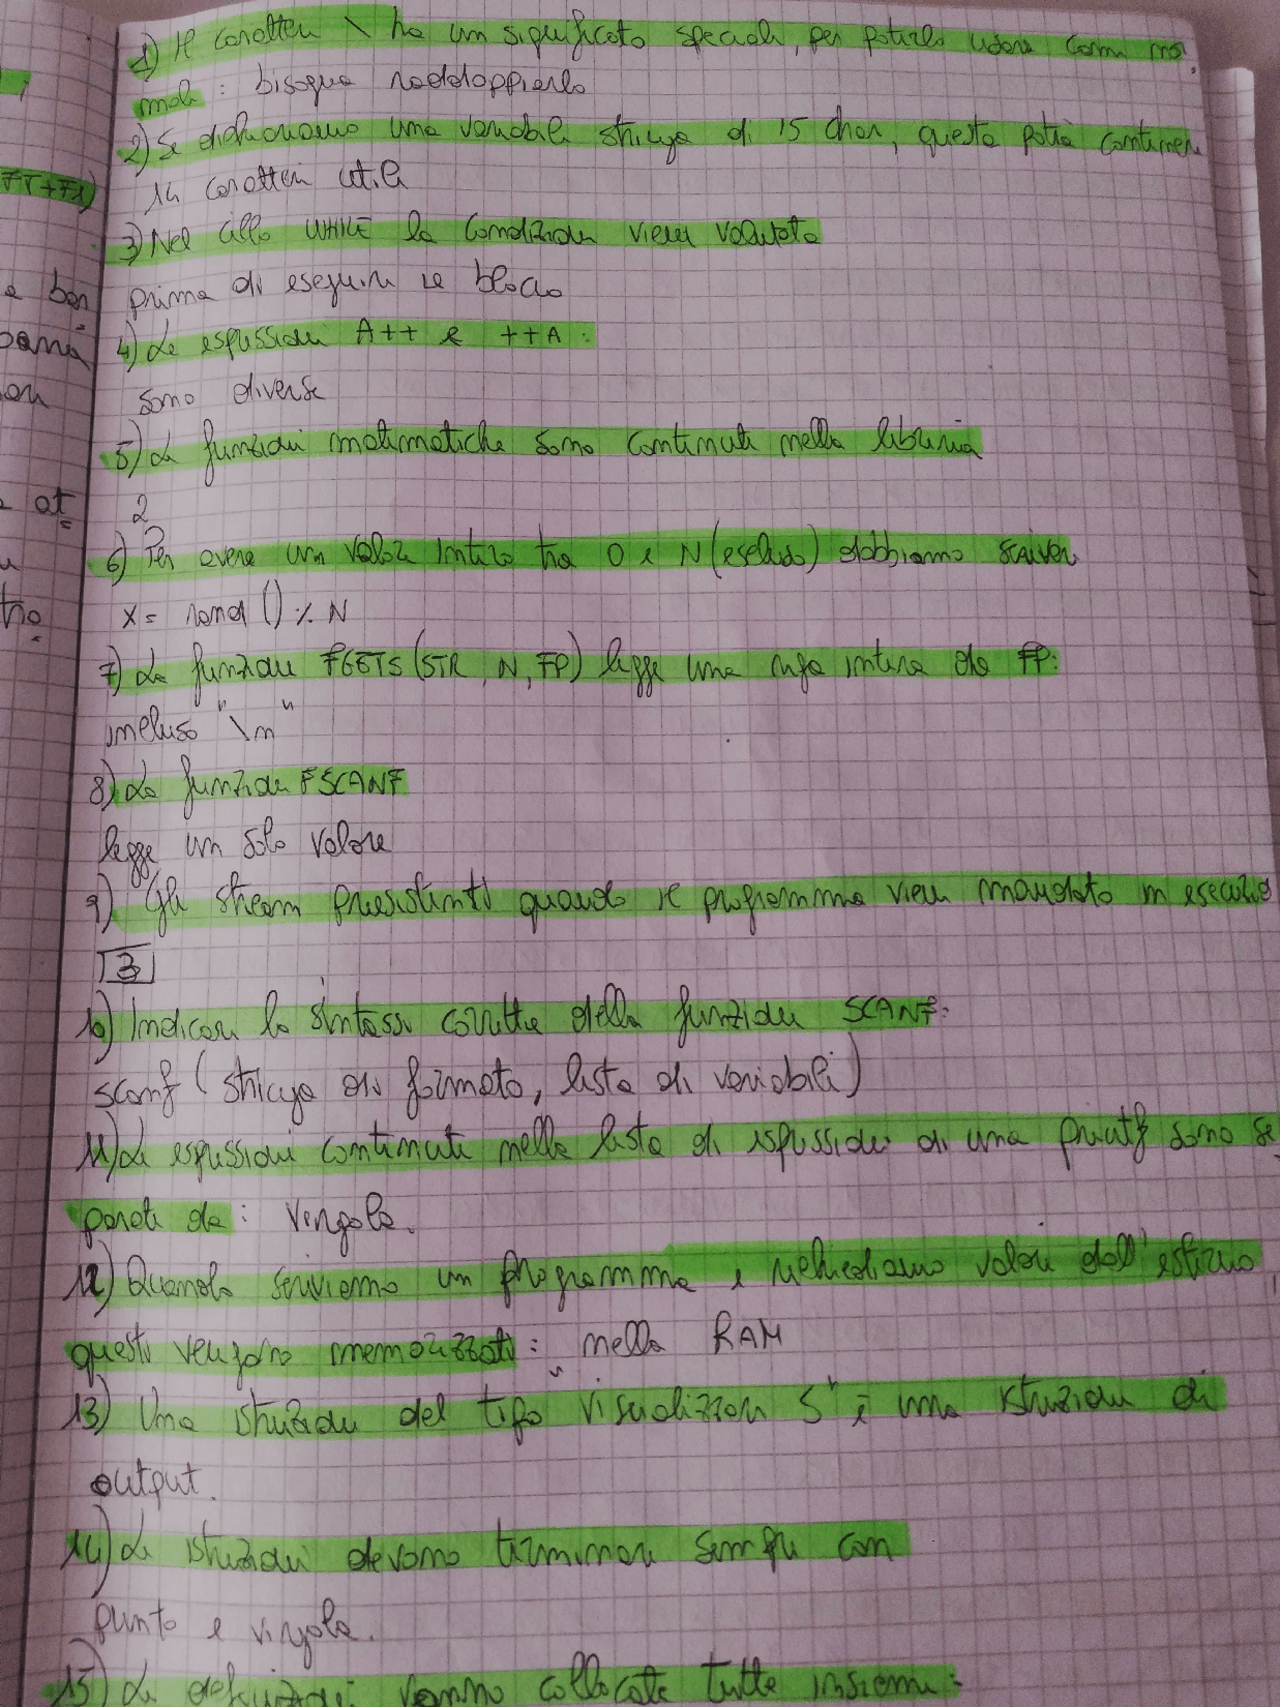 1) Il carattere \ ha un significato speciale, per poterlo usare come nor
male : bisogna raddoppiarlo
2) Se dichiariamo una variabile stringa di 15 char, questa potrà contenere
14 caratteri utili
3) Nel ciclo WHILE la condizione viene valutata
prima di eseguire il blocco
4) Le espressioni A++ e ++A :
sono diverse
5) Le funzioni matematiche sono contenute nella libreria
2
6) Per avere un valore intero tra 0 e N (escluso) dobbiamo scrivere
x = rand () % N
7) La funzione FGETS (STR, N, FP) legge una riga intera da FP:
incluso "\n"
8) La funzione FSCANF
legge un solo valore
9) Gli stream preesistenti quando il programma viene mandato in esecuzio
3
10) Indicare la sintassi corretta della funzione SCANF:
scanf ( stringa di formato, lista di variabili )
11) Le espressioni contenute nella lista di espressioni di una printf sono se
parate da : virgola.
12) Quando scriviamo un programma e richiediamo valori dall'esterno
questi vengono memorizzati : nella RAM
13) Una istruzione del tipo "visualizzare S" è una istruzione di
output.
14) Le istruzioni devono terminare sempre con
punto e virgola.
15) Le definizioni vanno collocate tutte insieme :
FT+FX)
e ben
ono
at
tro